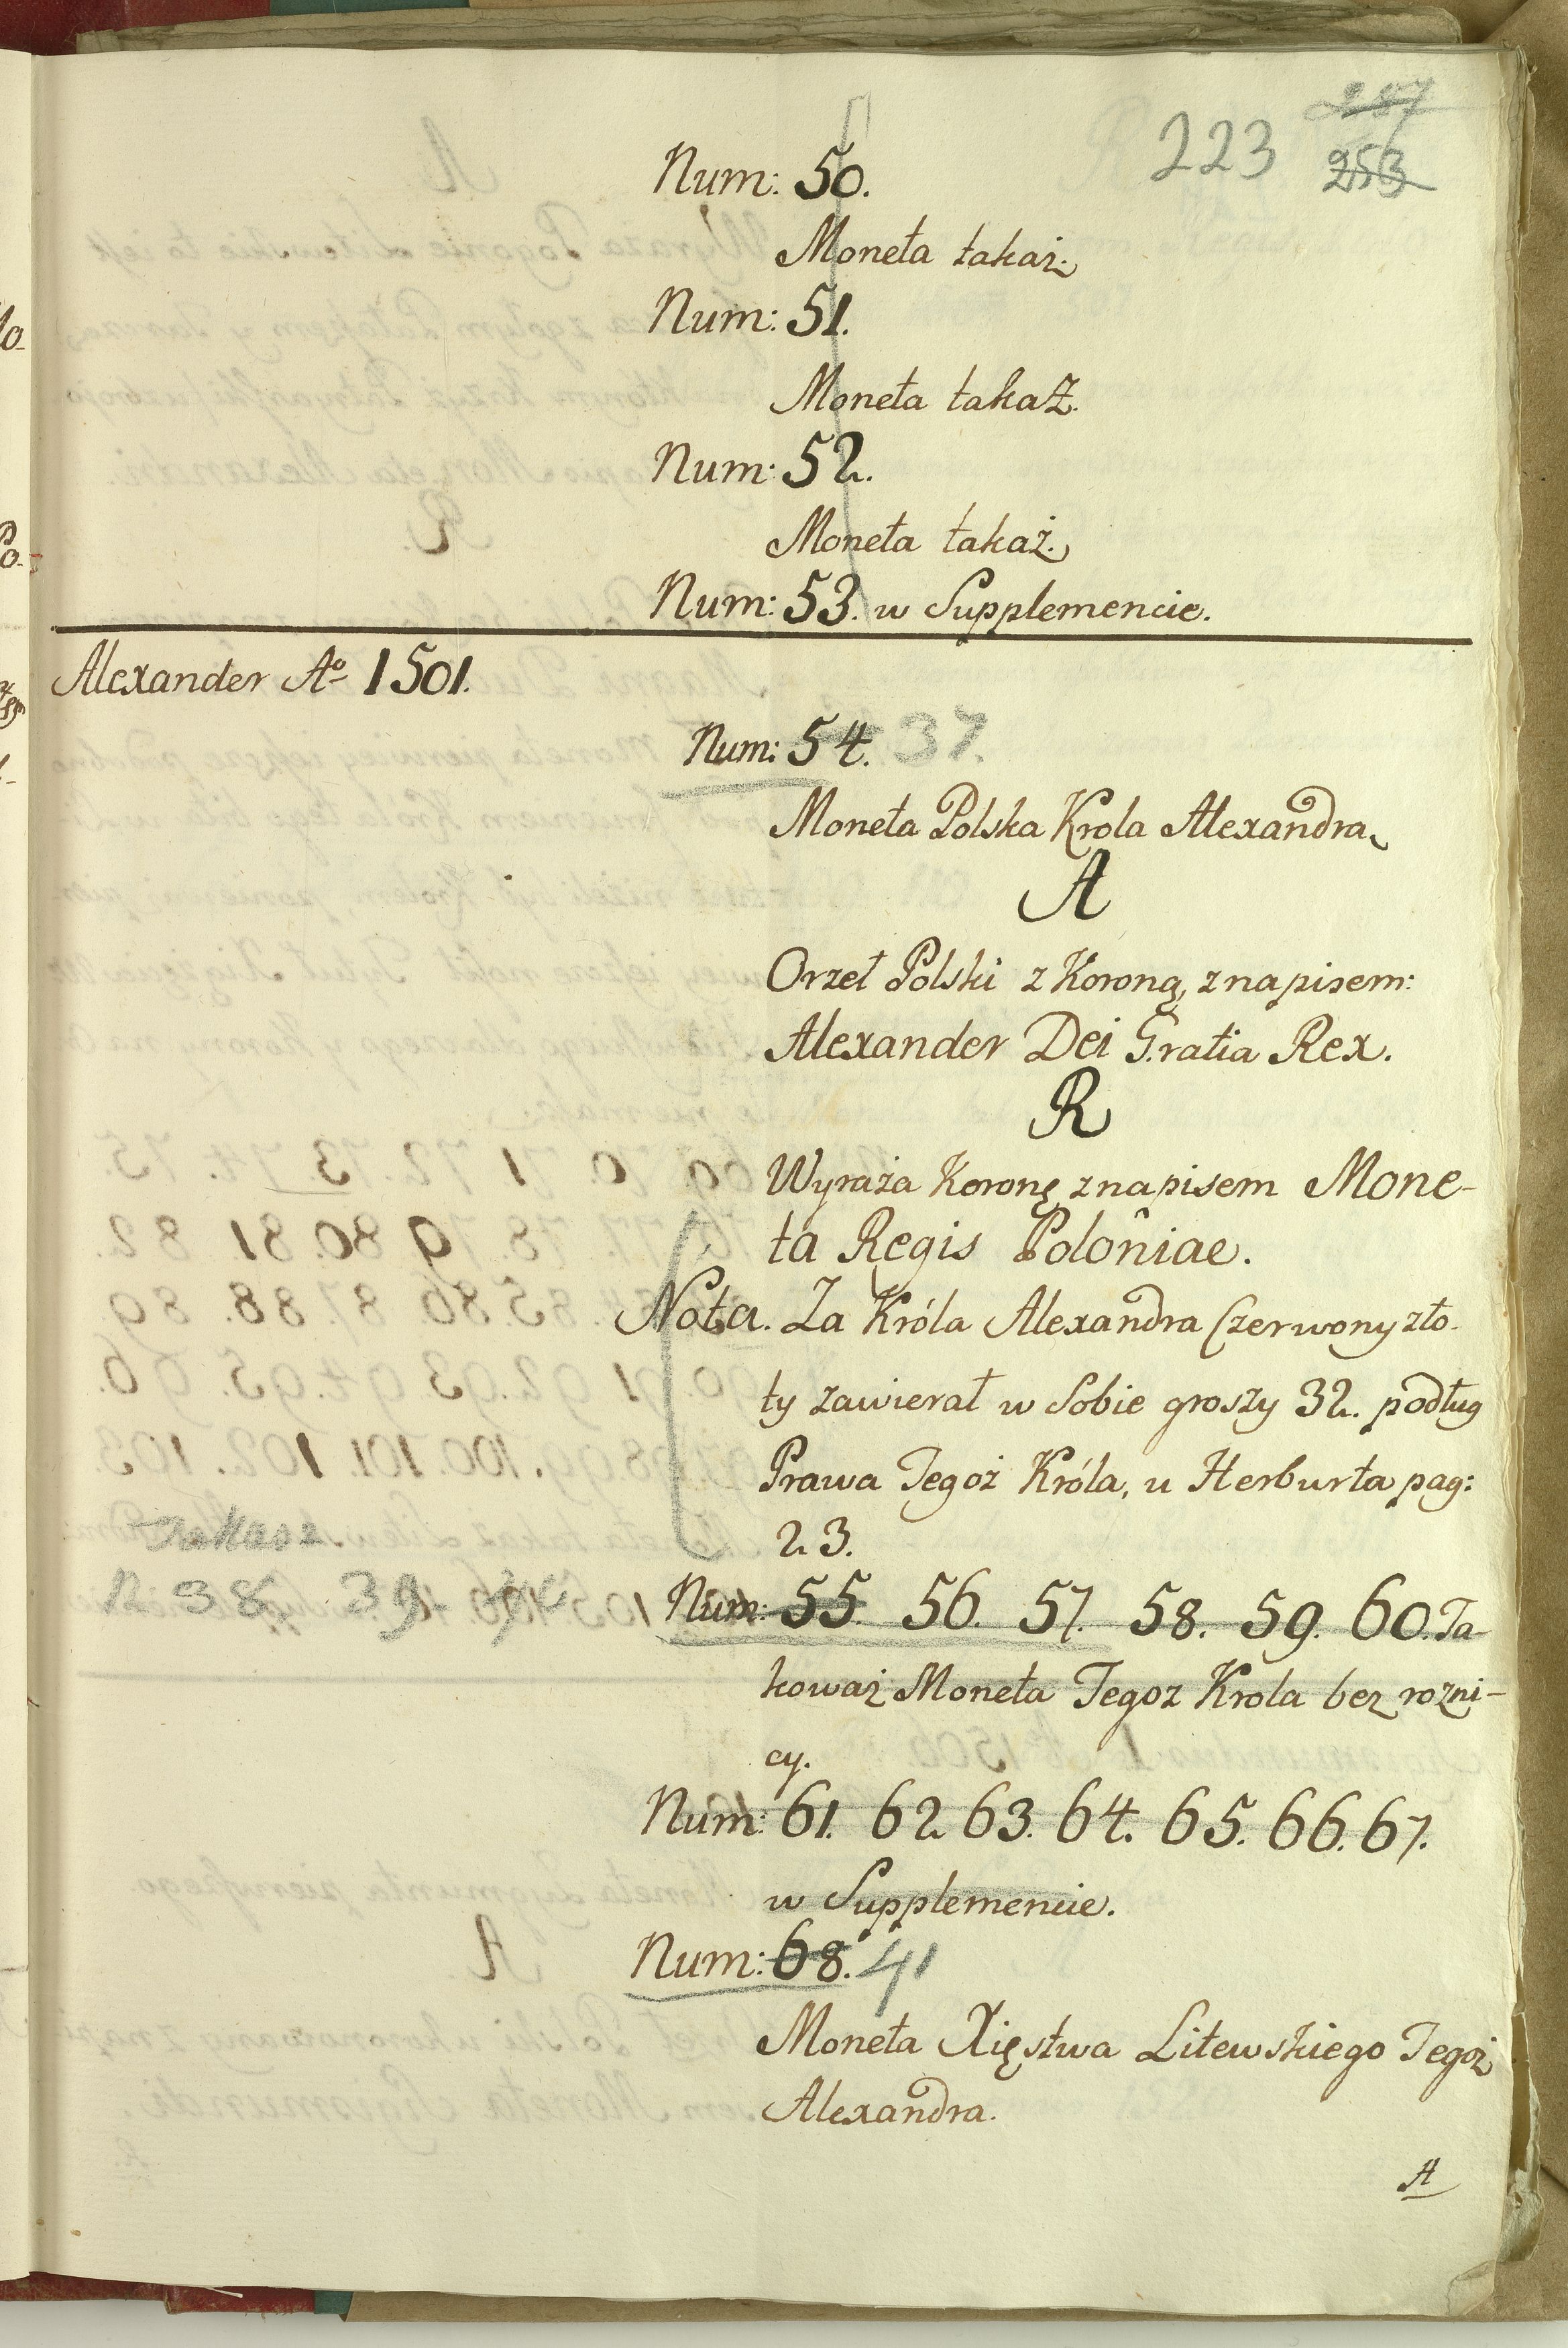 223 253
Num: 50.
Moneta takaż.
Num: 51.
Moneta takaż.
Num: 52.
Moneta takaż.
Num: 53. w Supplemencie.
Alexander Aº 1501.
Num: 54. 37.
Moneta Polska Krola Alexandra.
A
Orzeł Polski z Koroną, z napisem:
Alexander Dei Gratia Rex.
R
Wyraża Koronę z napisem Mone-
ta Regis Poloniae.
Nota. Za Króla Alexandra Czerwony zło-
ty zawierał w Sobie groszy 32. podług
Prawa Tegoż Króla, u Herburta pag:
23.
Takasz
N 38, 39.
Num: 55. 56. 57. 58. 59. 60. Ta-
koważ Moneta Tegoz Krola bez rozni-
cy.
Num: 61. 62. 63. 64. 65. 66. 67.
w Supplemencie.
Num: 68. 41
Moneta Xięstwa Litewskiego Tegoż
Alexandra.
A